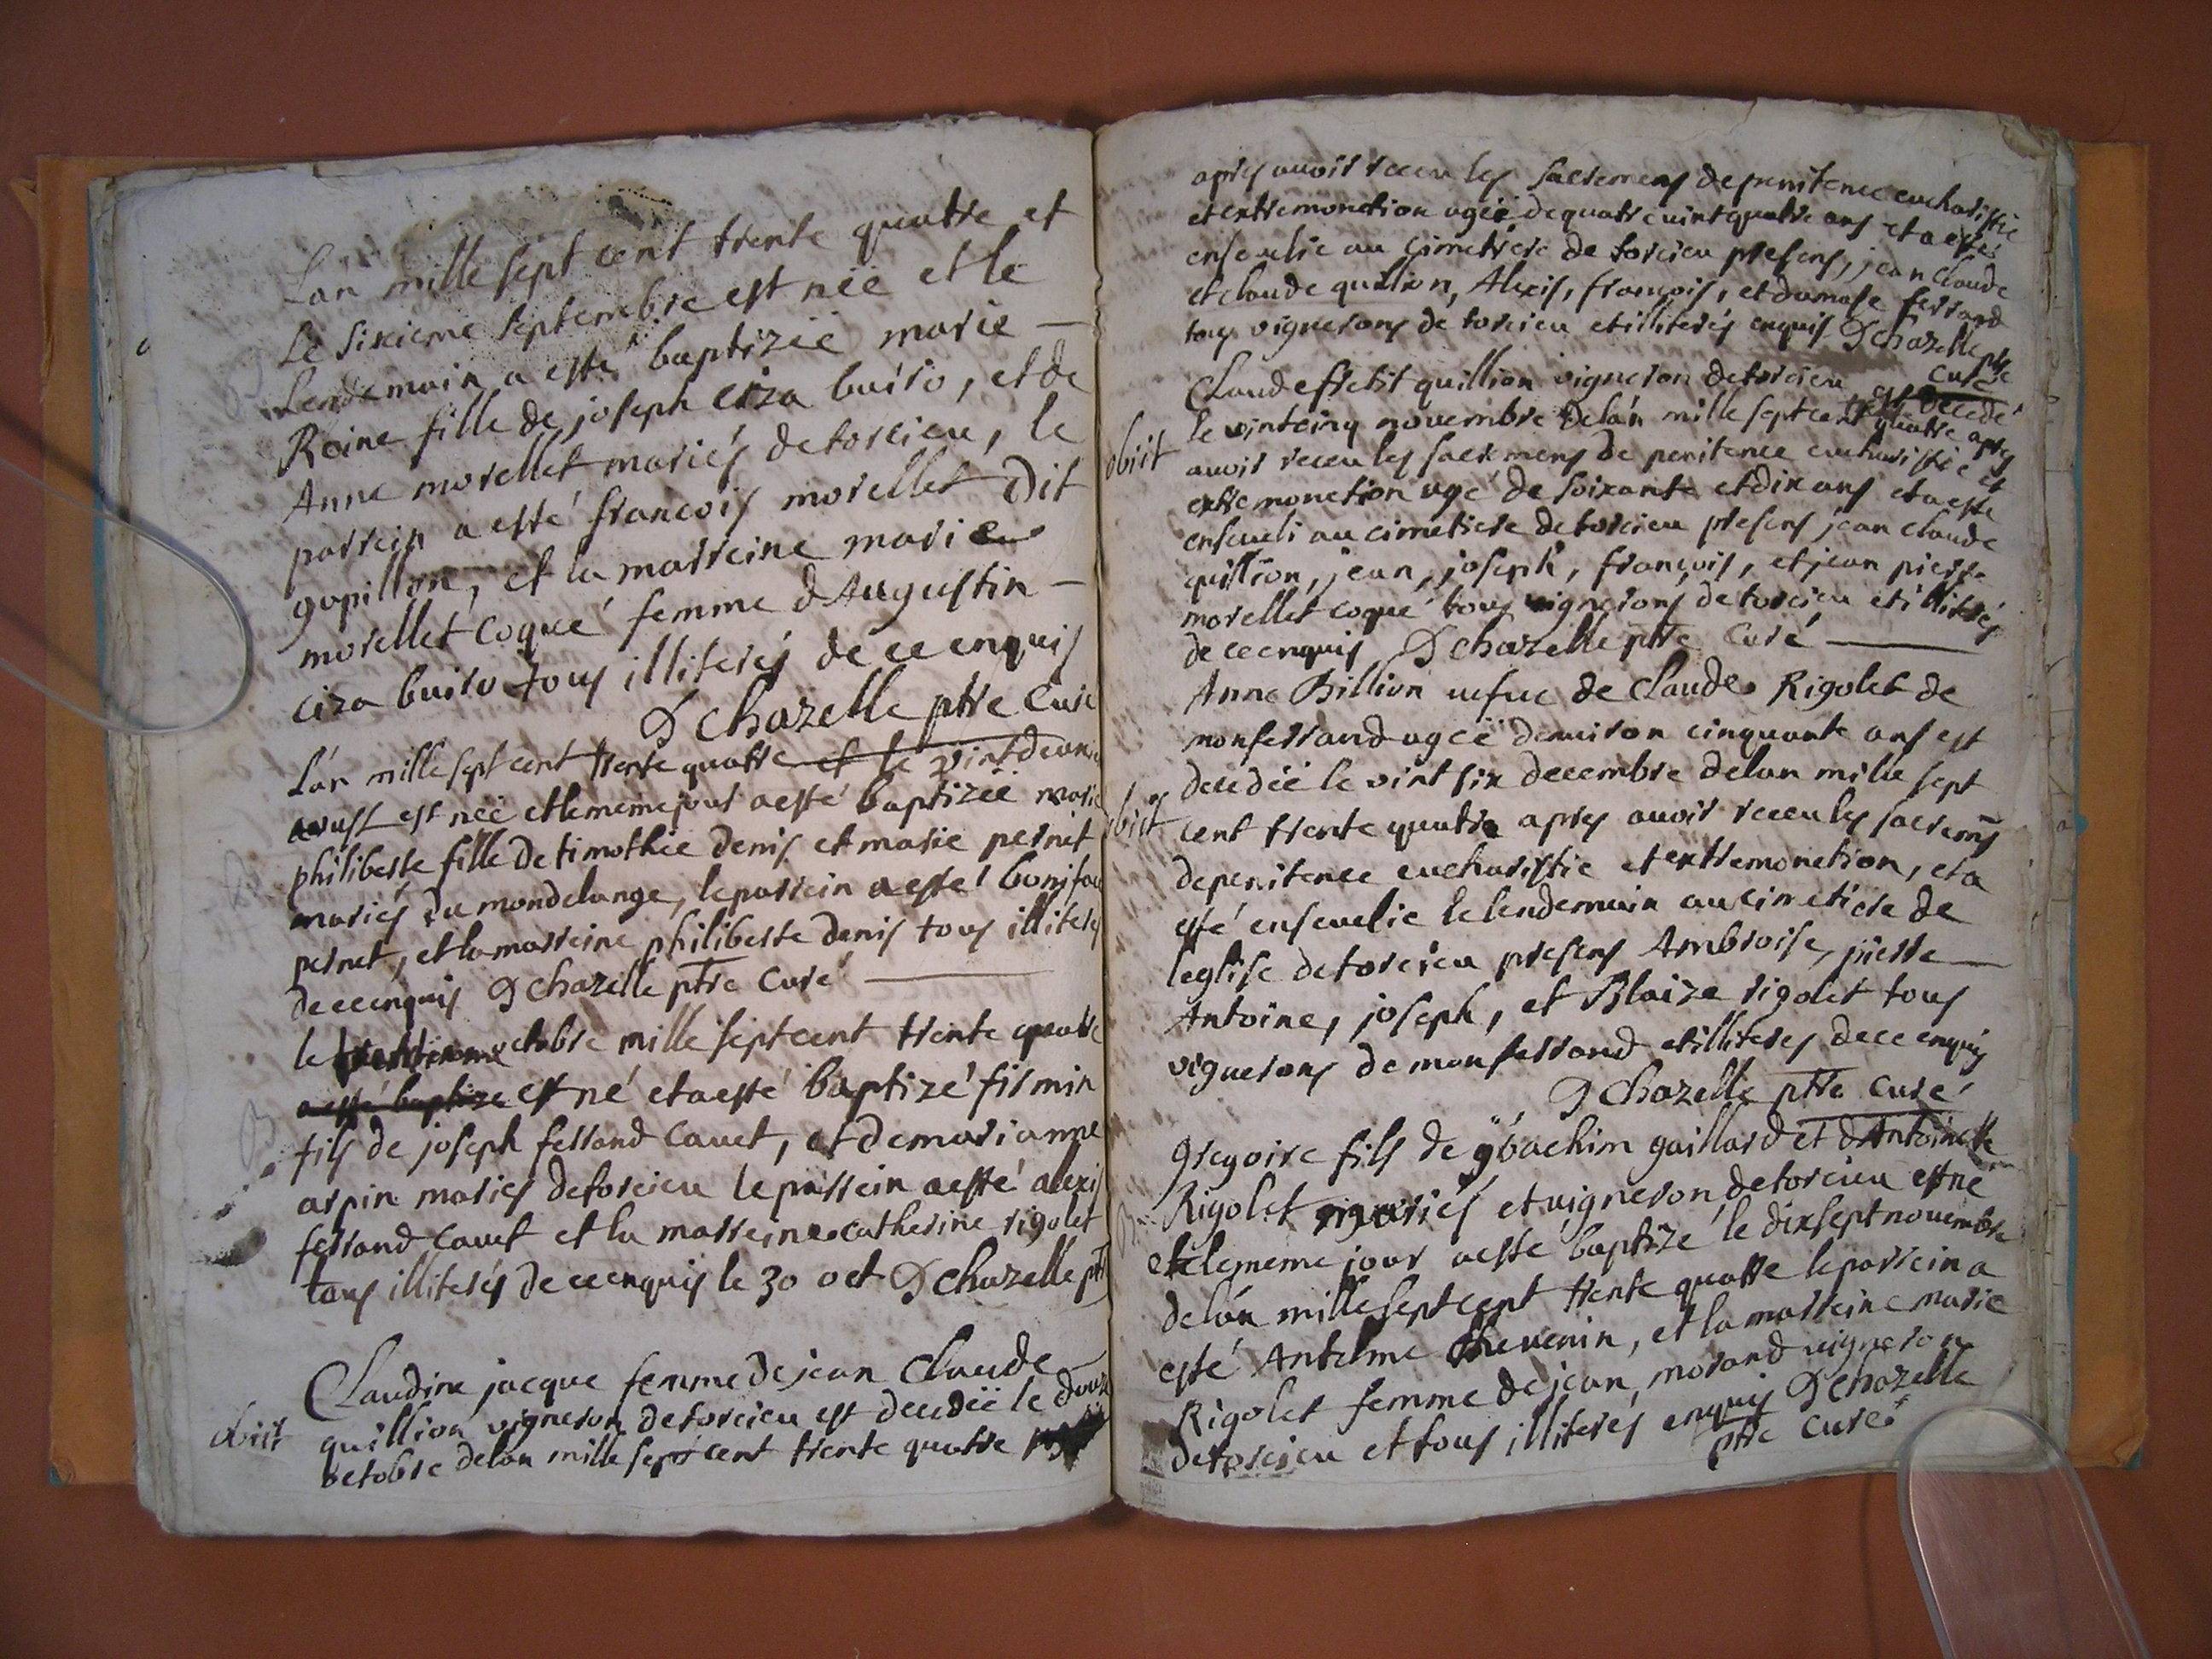 Lan mille sept cent trente quatre et
Le sixieme septembre est néé et le
Lendemain a esté baptizéé marie —
Reine fille de joseph ciza buiro, et de
Anne morellet mariés de torcieu, le
parrein a esté francois morellet dit
gopillon, et la marreine marie
morellet coqué femme dAugustin —
ciza buiro tous illiterés de ce enquis
D chazelle ptre Curé
Lán mille sept cent trente quatre et le vint deux
aoust est néé et le meme jour a esté baptizéé marie
philiberte fille de timothée denis et marie pernet
mariés du mondelange, le parrein a esté boniface
pernet, et la marreine philiberte denis tous illiterés
de ce enquis D chazelle ptre Curé
le octobre mille sept cent trente quatre
a esté baptize est né et a esté baptizé firmin
fils de joseph ferrand cauet, et de marianne
arpin mariés de torcieu le parrein a esté alexis
ferrand cauet et la marreine catherine rigolet
tous illiterés de ce enquis le 30 oct D chazelle ptre
Claudine jacque femme de jean Claude —
obiit quillion vigneron de torcieu est decedéé le douze
octobre de lan mille sept cent trente quatre
apres auoir receu les sacremens de penitence eucharistie
et extremonction agéé de quatre vint quatre ans et a esté
enseuelie au cimetiere de torcieu presens, jean claude
et claude quillion, Alexis, françois, et damase ferrand
tous vignerons de torcieu et illiterés enquis D chazelle ptre
curé
Claude ffetit quillion vigneron de torcieu est decedé
le vintcinq novembre de lán mille sept cent trente quatre apres
obiit auoir receu les sacremens de penitence eucharistie et
extremonction agé de soixante et dix ans et a esté
enseueli au cimetiere de torcieu presens jean claude
quillion, jean, joseph, françois, et jean pierre
morellet coqué tous vignerons de torcieu et illiterés
de ce enquis D chazelle ptre Curé —
Anne Billion uefue de Claude Rigolet de
monferrand agéé denuiron cinquante ans est
decedéé le vint six decembre de lan mille sept
obiit cent trente quatre apres auoir receu les sacremens
de penitence eucharistie et extremonction, et a
esté enseuelie le lendemain au cimetiere de
leglise de torcieu presens Ambroise, pierre —
Antoine, joseph, et Blaize rigolet tous
vignerons de monferrand et illiterés de ce enquis
D chazelle ptre Curé
Gregoire fils de joachim gaillard et dAntoinette
Rigolet mariés et uigneron de torcieu est né
et le meme jour a esté baptizé le dixsept nouembre
de lán mille sept cent trente quatre le parrein a
esté Antelme theuenin, et la marreine marie
Rigolet femme de jean morand uigneron
de torcieu et tous illiterés enquis D chazelle
ptre Curé